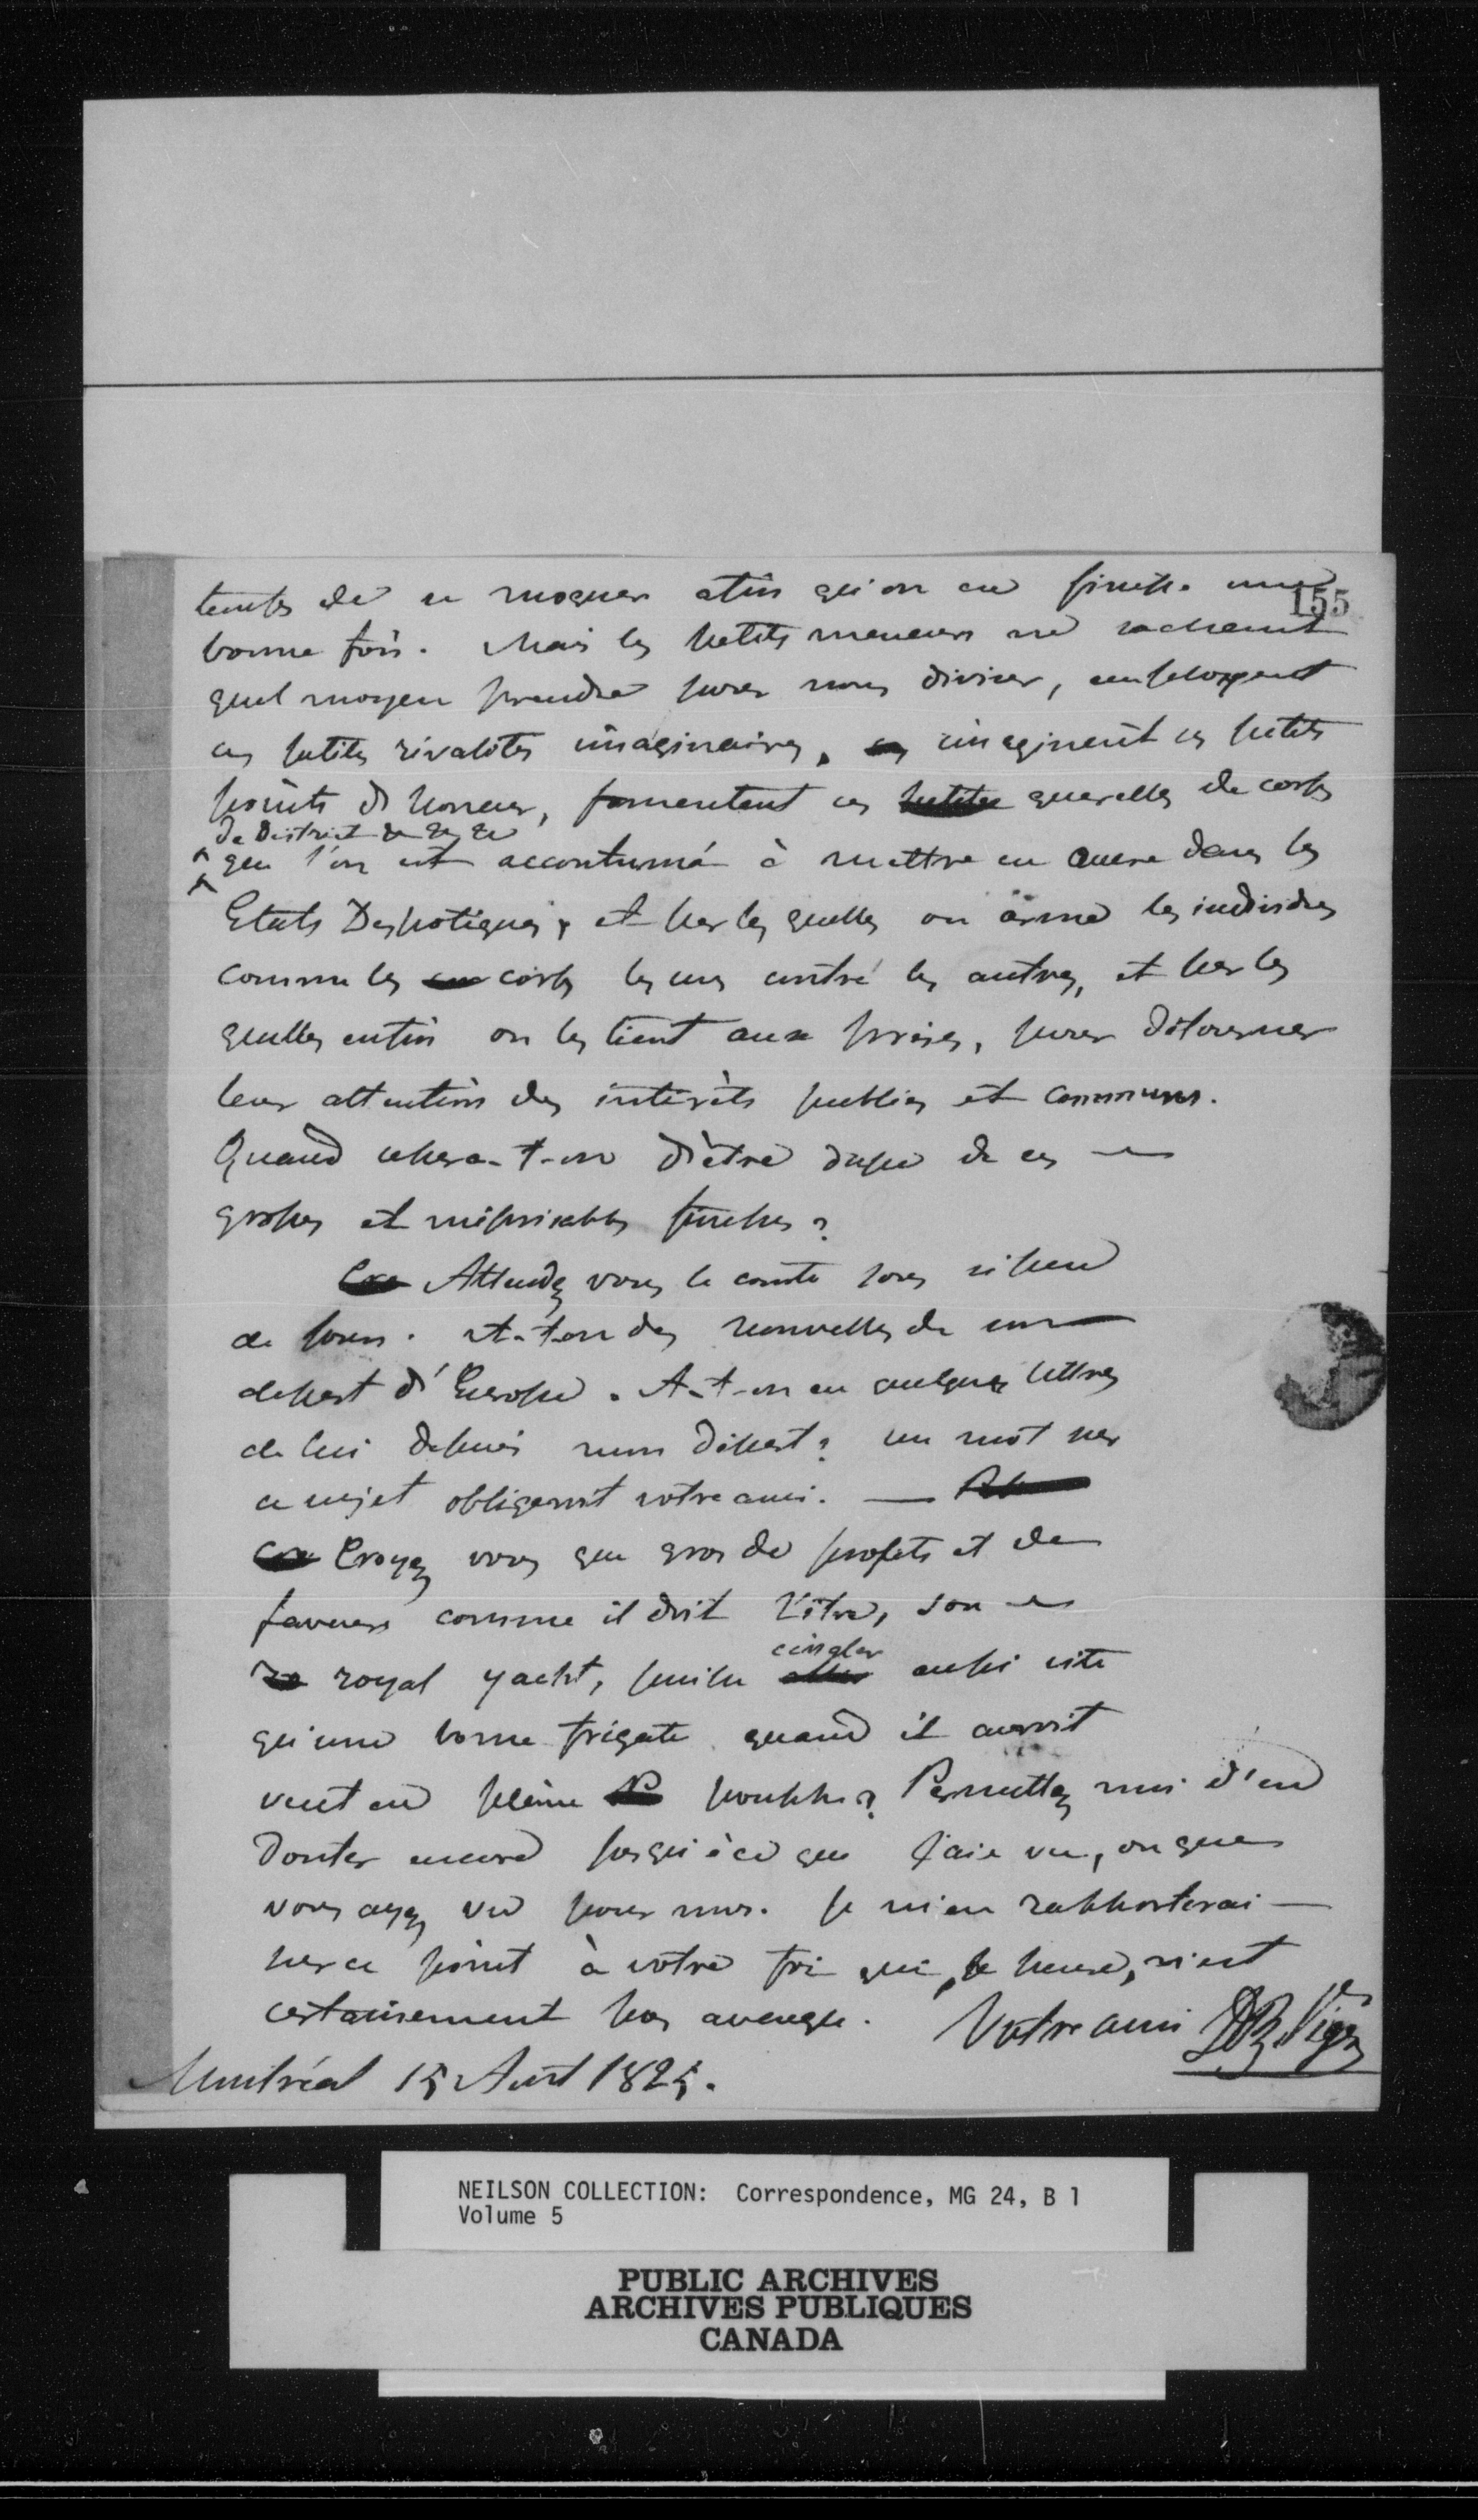 155
temps de se moquer afin qu'on en finisse une
bonne fois. Mais les petits meneurs ne sachant
quel moyen prendre pour nous diviser, emploient
ces petites rivalités imaginaires, ces imaginent ces petits
points d'honneur, fomentent ces petites querelles de corps
de District &c &c &c
que l'on est accoutumé à mettre en œuvre dans les
Etats Despotiques, et par les quelles on arme les individus
comme les corps les uns contre les autres, et par les
quelles enfin on les tient aux prises, pour détourner
leur attention des intérêts publics et communs.
Quand cessera-t-on d'être dupe de ces
grosses et méprisables finesses?
Attendez vous le comte sous si peu
de jours. A-t-on des nouvelles de son
départ d'Europe. A-t-on eu quelques lettres
de lui depuis mon départ? un mot sur
ce sujet obligeroit votre ami. —
Croyez vous que gros de profets et de
faveurs comme il doit l'être, son
royal yacht, puisse cingler aussi vite
qu'une bonne frigate quand il auroit
vent en pleine pouppe? Permettez moi d'en
douter encore jusqu'à ce que j'aie vu, ou que
vous ayez vu pour moi. Je m'en rapporterai —
sur ce point à votre foi qui, je pense, n'est
certainement pas aveugle. Votre ami DB Viger
Montréal 15 Août 1825.
NEILSON COLLECTION: Correspondence, MG 24, B 1
Volume 5
PUBLIC ARCHIVES
ARCHIVES PUBLIQUES
CANADA